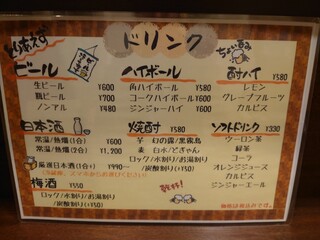 とりあえず
ドリンク
ちょい呑み
ビール
生ビール ¥600
瓶ビール ¥700
ノンアル ¥480
ハイボール
角ハイボール ¥580
コークハイボール ¥600
ジンジャーハイ ¥600
酎ハイ ¥380
レモン
グレープフルーツ
カルピス
日本酒
常温/熱燗(1合) ¥600
常温/熱燗(2合) ¥1,200
厳選日本酒(1合) ¥990〜
焼酎 ¥580
芋
黒霧島
麦
ロック/水割り/お湯割り
炭酸割り(+¥50)
ソフトドリンク ¥330
ウーロン茶
緑茶
コーラ
オレンジジュース
カルピス
ジンジャーエール
梅酒 ¥550
ロック/水割り/お湯割り
炭酸割り(+¥50)
乾杯!